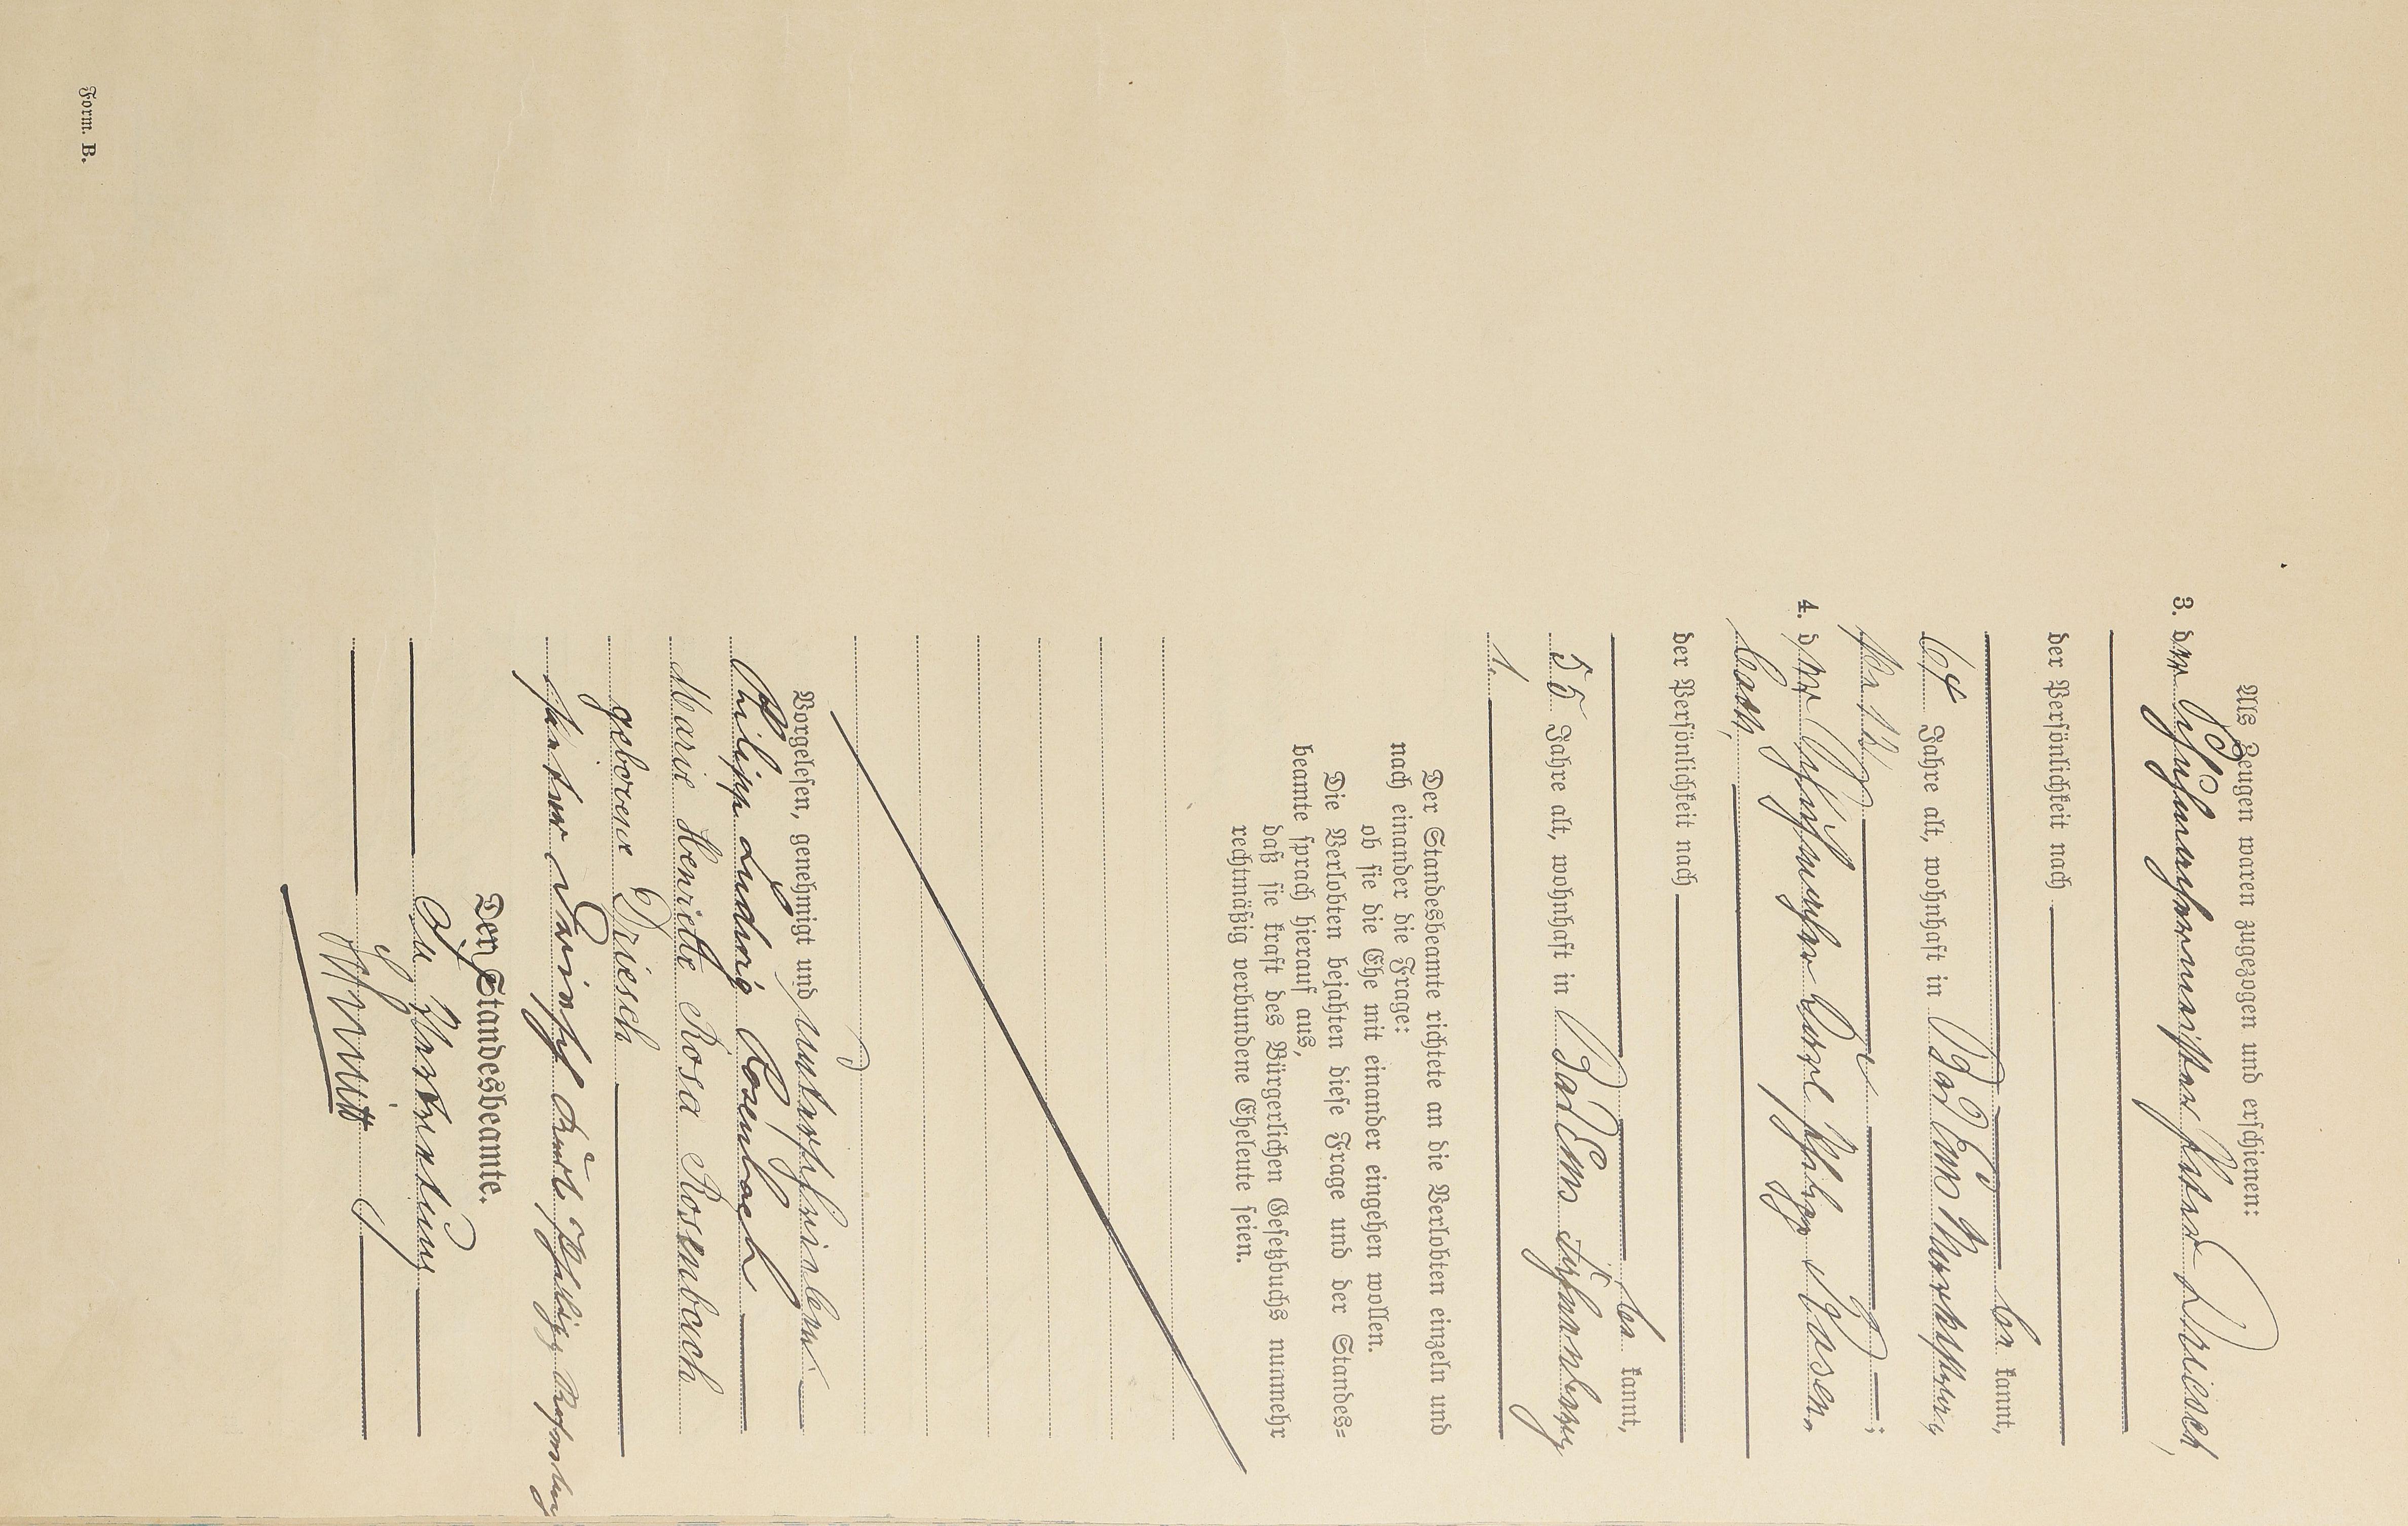 Als Zeugen waren zugezogen und erschienen:
3. der Schuhmachermeister Peter Driesch,
der Persönlichkeit nach
be kannt,
64 Jahre alt, wohnhaft in Bad Ems
;
4. der Schuhmacher Karl Philipp Rosen-
bach,
der Persönlichkeit nach
be kannt,
55 Jahre alt, wohnhaft in Bad Ems
1.
Der Standesbeamte richtete an die Verlobten einzeln und
nach einander die Frage:
ob sie die Ehe mit einander eingehen wollen.
Die Verlobten bejahten diese Frage und der Standes-
beamte sprach hierauf aus,
daß sie kraft des Bürgerlichen Gesetzbuchs nunmehr
rechtmäßig verbundene Eheleute seien.
Vorgelesen, genehmigt und unterschrieben:
Philipp Ludwig Rosenbach
Marie Henriette Rosa Rosenbach
geborene Driesch
Peter Driesch Karl Philipp Rosenbach
Der Standesbeamte.
In Vertretung
Form. B.